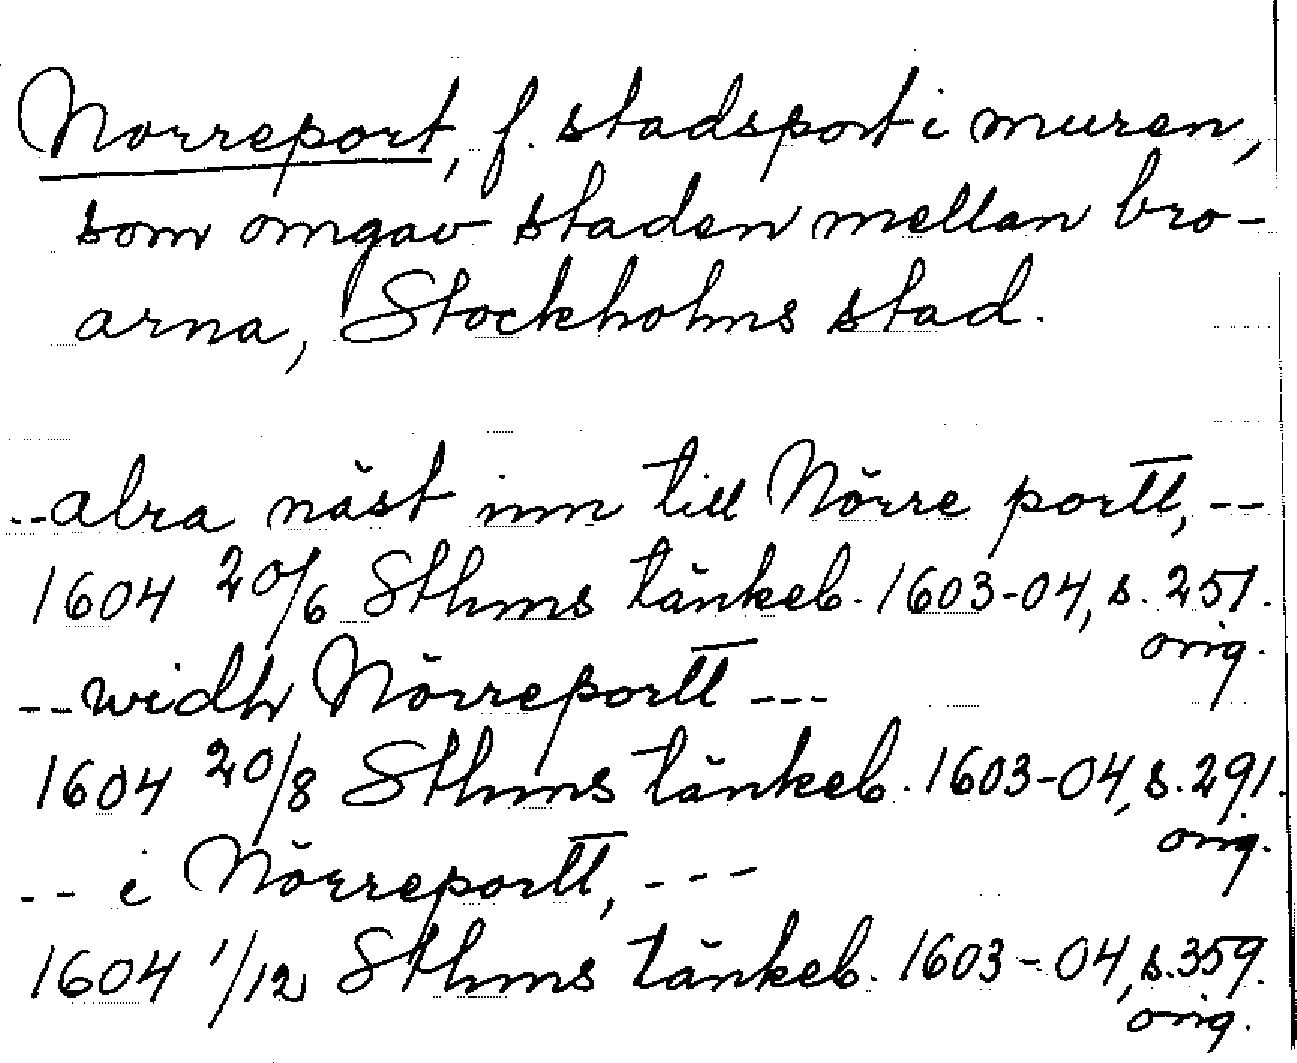 Norreport, f. stadsport i muren,
som omgav staden mellan bro-
arna, Stockholms stad.
--alra näst inn till Nörre portt, --
1604 20/6 Sthms tänkeb. 1603-04, s. 251.
orig.
--widh Nörreportt ---
1604 20/8 Sthms tänkeb. 1603-04, s. 291.
orig.
-- i Nörreportt, ---
1604 1/12 Sthms tänkeb. 1603-04, s. 359.
orig.